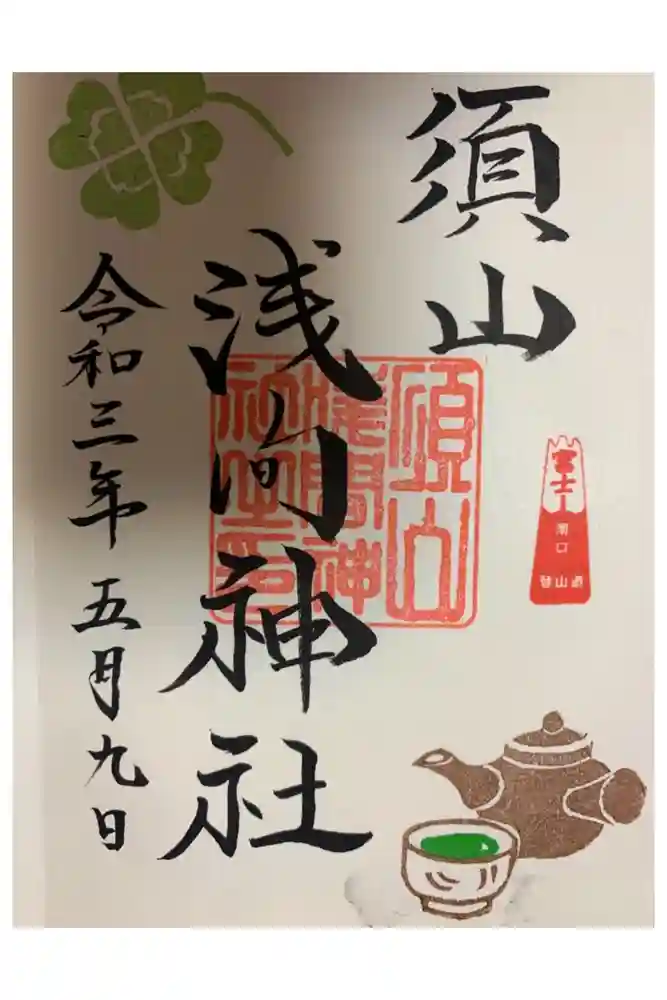 須山
浅間神社
令和三年五月九日
須山
浅間神
社之印
富士山
南口
登山道